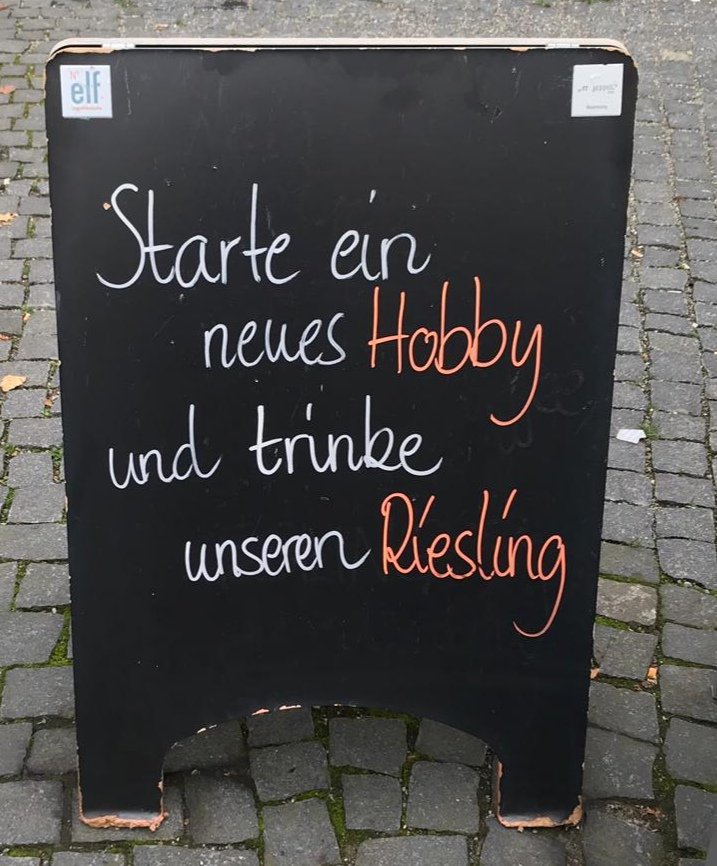 N°
elf
Starte ein
neues Hobby
und trinke
unseren Riesling